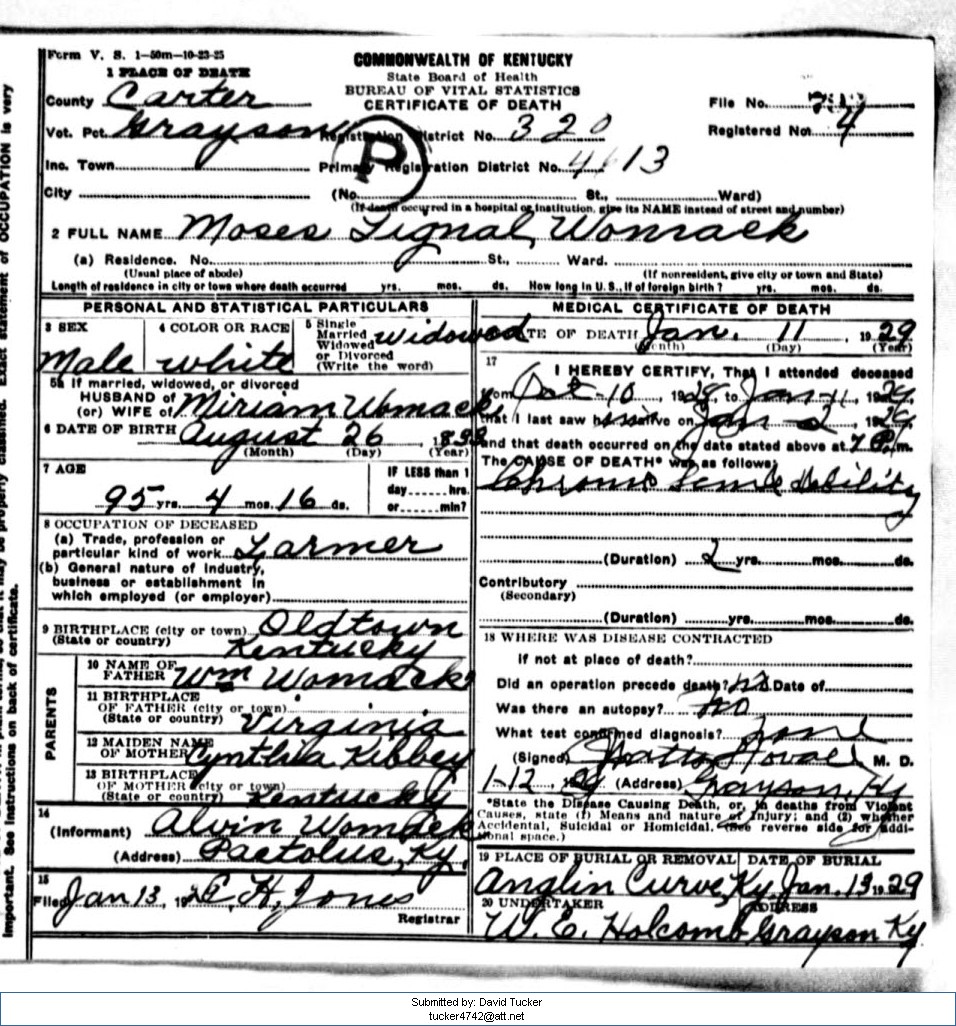 Form V. S. 1-50m-10-23-25
COMMONWEALTH OF KENTUCKY
State Board of Health
BUREAU OF VITAL STATISTICS
CERTIFICATE OF DEATH
1 PLACE OF DEATH
County Carter
File No.
Vot. Pct. Grayson Registration District No. 320
Registered No. 4
Inc. Town Primary Registration District No. 4613
P
City (No. St., Ward)
(If death occurred in a hospital or institution, give its NAME instead of street and number)
2 FULL NAME Moses Signal Womack
(a) Residence. No. St., Ward.
(Usual place of abode) (If nonresident, give city or town and State)
Length of residence in city or town where death occurred yrs. mos. ds. How long in U. S., if of foreign birth? yrs. mos. ds.
PERSONAL AND STATISTICAL PARTICULARS
3 SEX
Male
4 COLOR OR RACE
white
5 Single
Married
Widowed
or Divorced
(Write the word)
widowed
5a If married, widowed, or divorced
HUSBAND of
(or) WIFE of Miriam Womack
6 DATE OF BIRTH August 26, 1833
(Month) (Day) (Year)
7 AGE
95 yrs. 4 mos. 16 ds.
IF LESS than 1
day hrs.
or min?
8 OCCUPATION OF DECEASED
(a) Trade, profession or
particular kind of work Farmer
(b) General nature of industry,
business or establishment in
which employed (or employer)
9 BIRTHPLACE (city or town) Oldtown
(State or country) Kentucky
PARENTS
10 NAME OF
FATHER Wm Womack
11 BIRTHPLACE
OF FATHER (city or town)
(State or country) Virginia
12 MAIDEN NAME
OF MOTHER Cynthia Kibbey
13 BIRTHPLACE
OF MOTHER (city or town)
(State or country) Kentucky
14
(Informant) Alvin Womack
(Address) Pactolus, Ky.
15
Filed Jan 13, 192 C. H. Jones
Registrar
MEDICAL CERTIFICATE OF DEATH
DATE OF DEATH Jan. 11, 1929
(Month) (Day) (Year)
17
I HEREBY CERTIFY, That I attended deceased
from Oct-10, 1928, to Jan-11, 1929,
that I last saw him alive on Jan 2, 1929,
and that death occurred on the date stated above at 7 P. m.
The CAUSE OF DEATH* was as follows:
Chronic Senile debility
(Duration) 2 yrs. mos. ds.
Contributory
(Secondary)
(Duration) yrs. mos. ds.
18 WHERE WAS DISEASE CONTRACTED
If not at place of death?
Did an operation precede death? no Date of
Was there an autopsy? no
What test confirmed diagnosis?
(Signed) M. D.
1-12, 1929 (Address) Grayson, Ky
*State the Disease Causing Death, or, in deaths from Violent
Causes, state (1) Means and nature of Injury; and (2) whether
Accidental, Suicidal or Homicidal. (See reverse side for addi-
tional space.)
19 PLACE OF BURIAL OR REMOVAL
Anglin Curve, Ky
DATE OF BURIAL
Jan. 13 1929
20 UNDERTAKER
W. E. Holcomb
ADDRESS
Grayson Ky
Submitted by: David Tucker
tucker4742@att.net